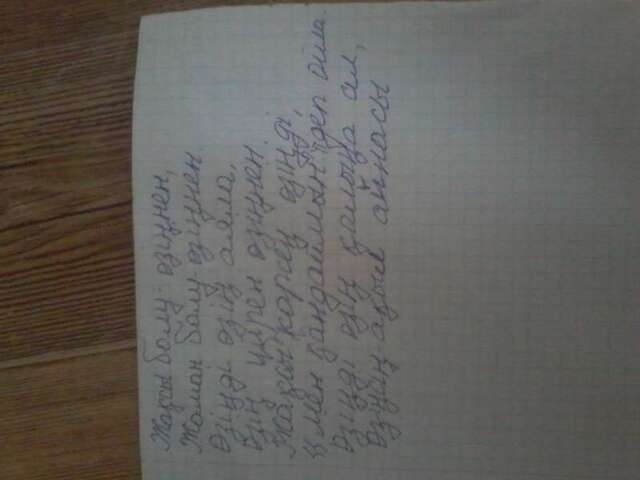 Жақсы болу-өзіңнен,
Жаман болу-өзіңнен
Өзіңді өзің аяла,
Өзің үйрен өзіңнен.
Жақсы көрсең өзіңді,
"Мен қандаймын" деп ойла.
Өзіңді өзің қолыңа ал,
ақыл айнасы